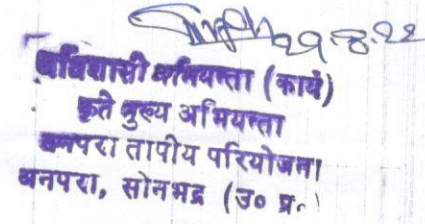 29.8.22
अधिशासी अभियन्ता (कार्य)
कृते मुख्य अभियन्ता
अनपरा तापीय परियोजना
अनपरा, सोनभद्र (उ० प्र०)